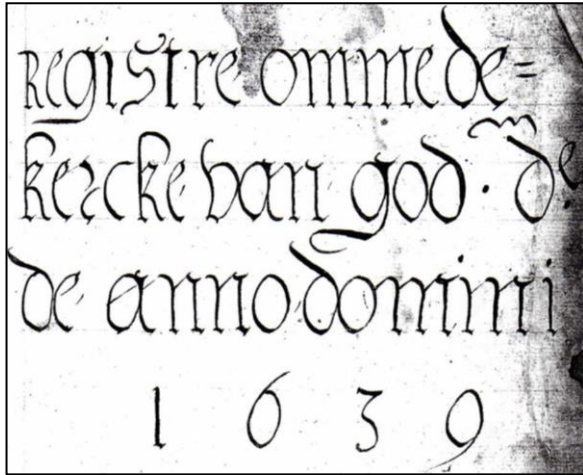 Registre omme de=
kercke van god · de
de anno domini
1639